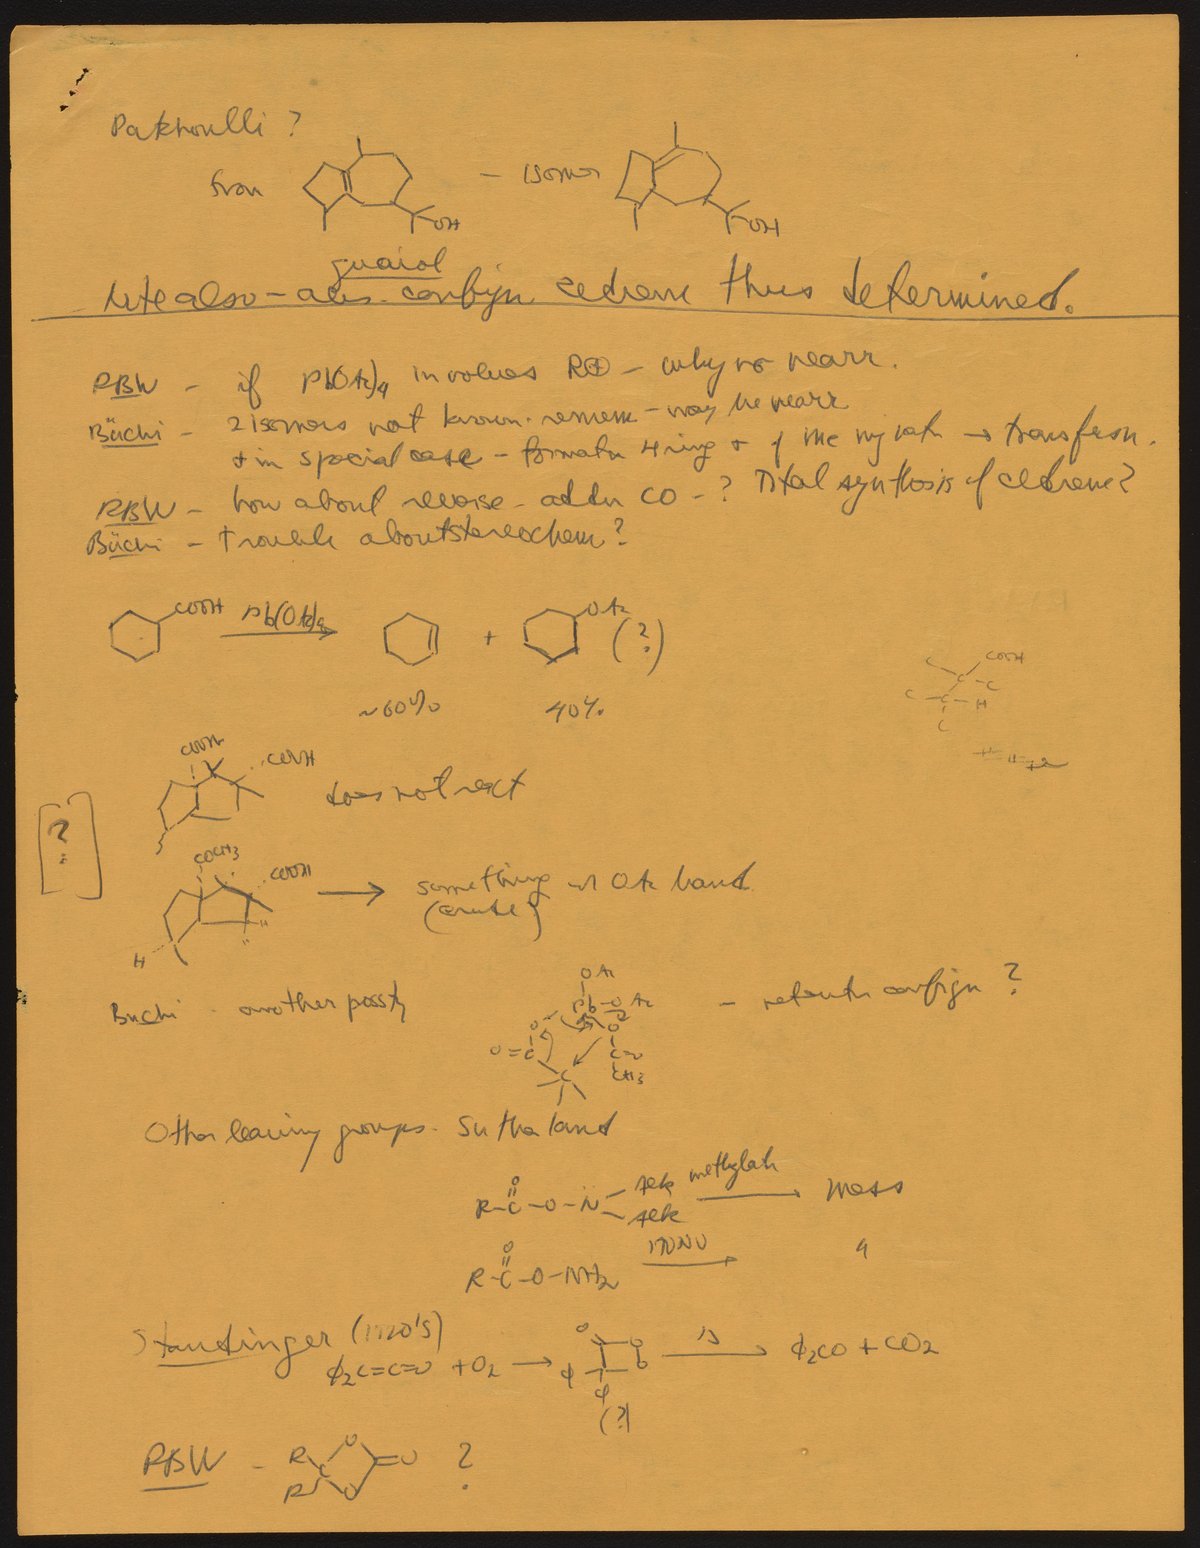 Patchoulli?
from
- isomer
OH
OH
guaiol
Note also - abs. config. cedrene thus determined.
RBW - if Pb(OAc)4 involves R⊕ - why no rearr.
Büchi - 2 isomers not known - may be rearr
+ in special case - formatn 4 ring + of migratn → transfem.
RBW - how about reverse - addn CO - ? Total synthesis of cedrene?
Büchi - trouble about stereochem?
COOH Pb(OAc)4 + OAc (?)
~60% 40%
COOH
C C
C C H
C
COOH COOH
does not react
[?]
COCH3 COOH
H H H
→ something w/ OAc band
(crude)
Büchi - another possty
OAc
Pb-OAc
O O
O=C C=O
C CH3
- retentn config?
Other leaving groups - Sutherland
R-C-O-N
O
Alk
Alk
methylatn
mess
R-C-O-NH2
O
HONO
"
Staudinger (1920's)
φ2C=C=O + O2 →
O O
O
φ
φ
(?)
Δ
φ2CO + CO2
RBW -
R
R
C
O
O
=O
?